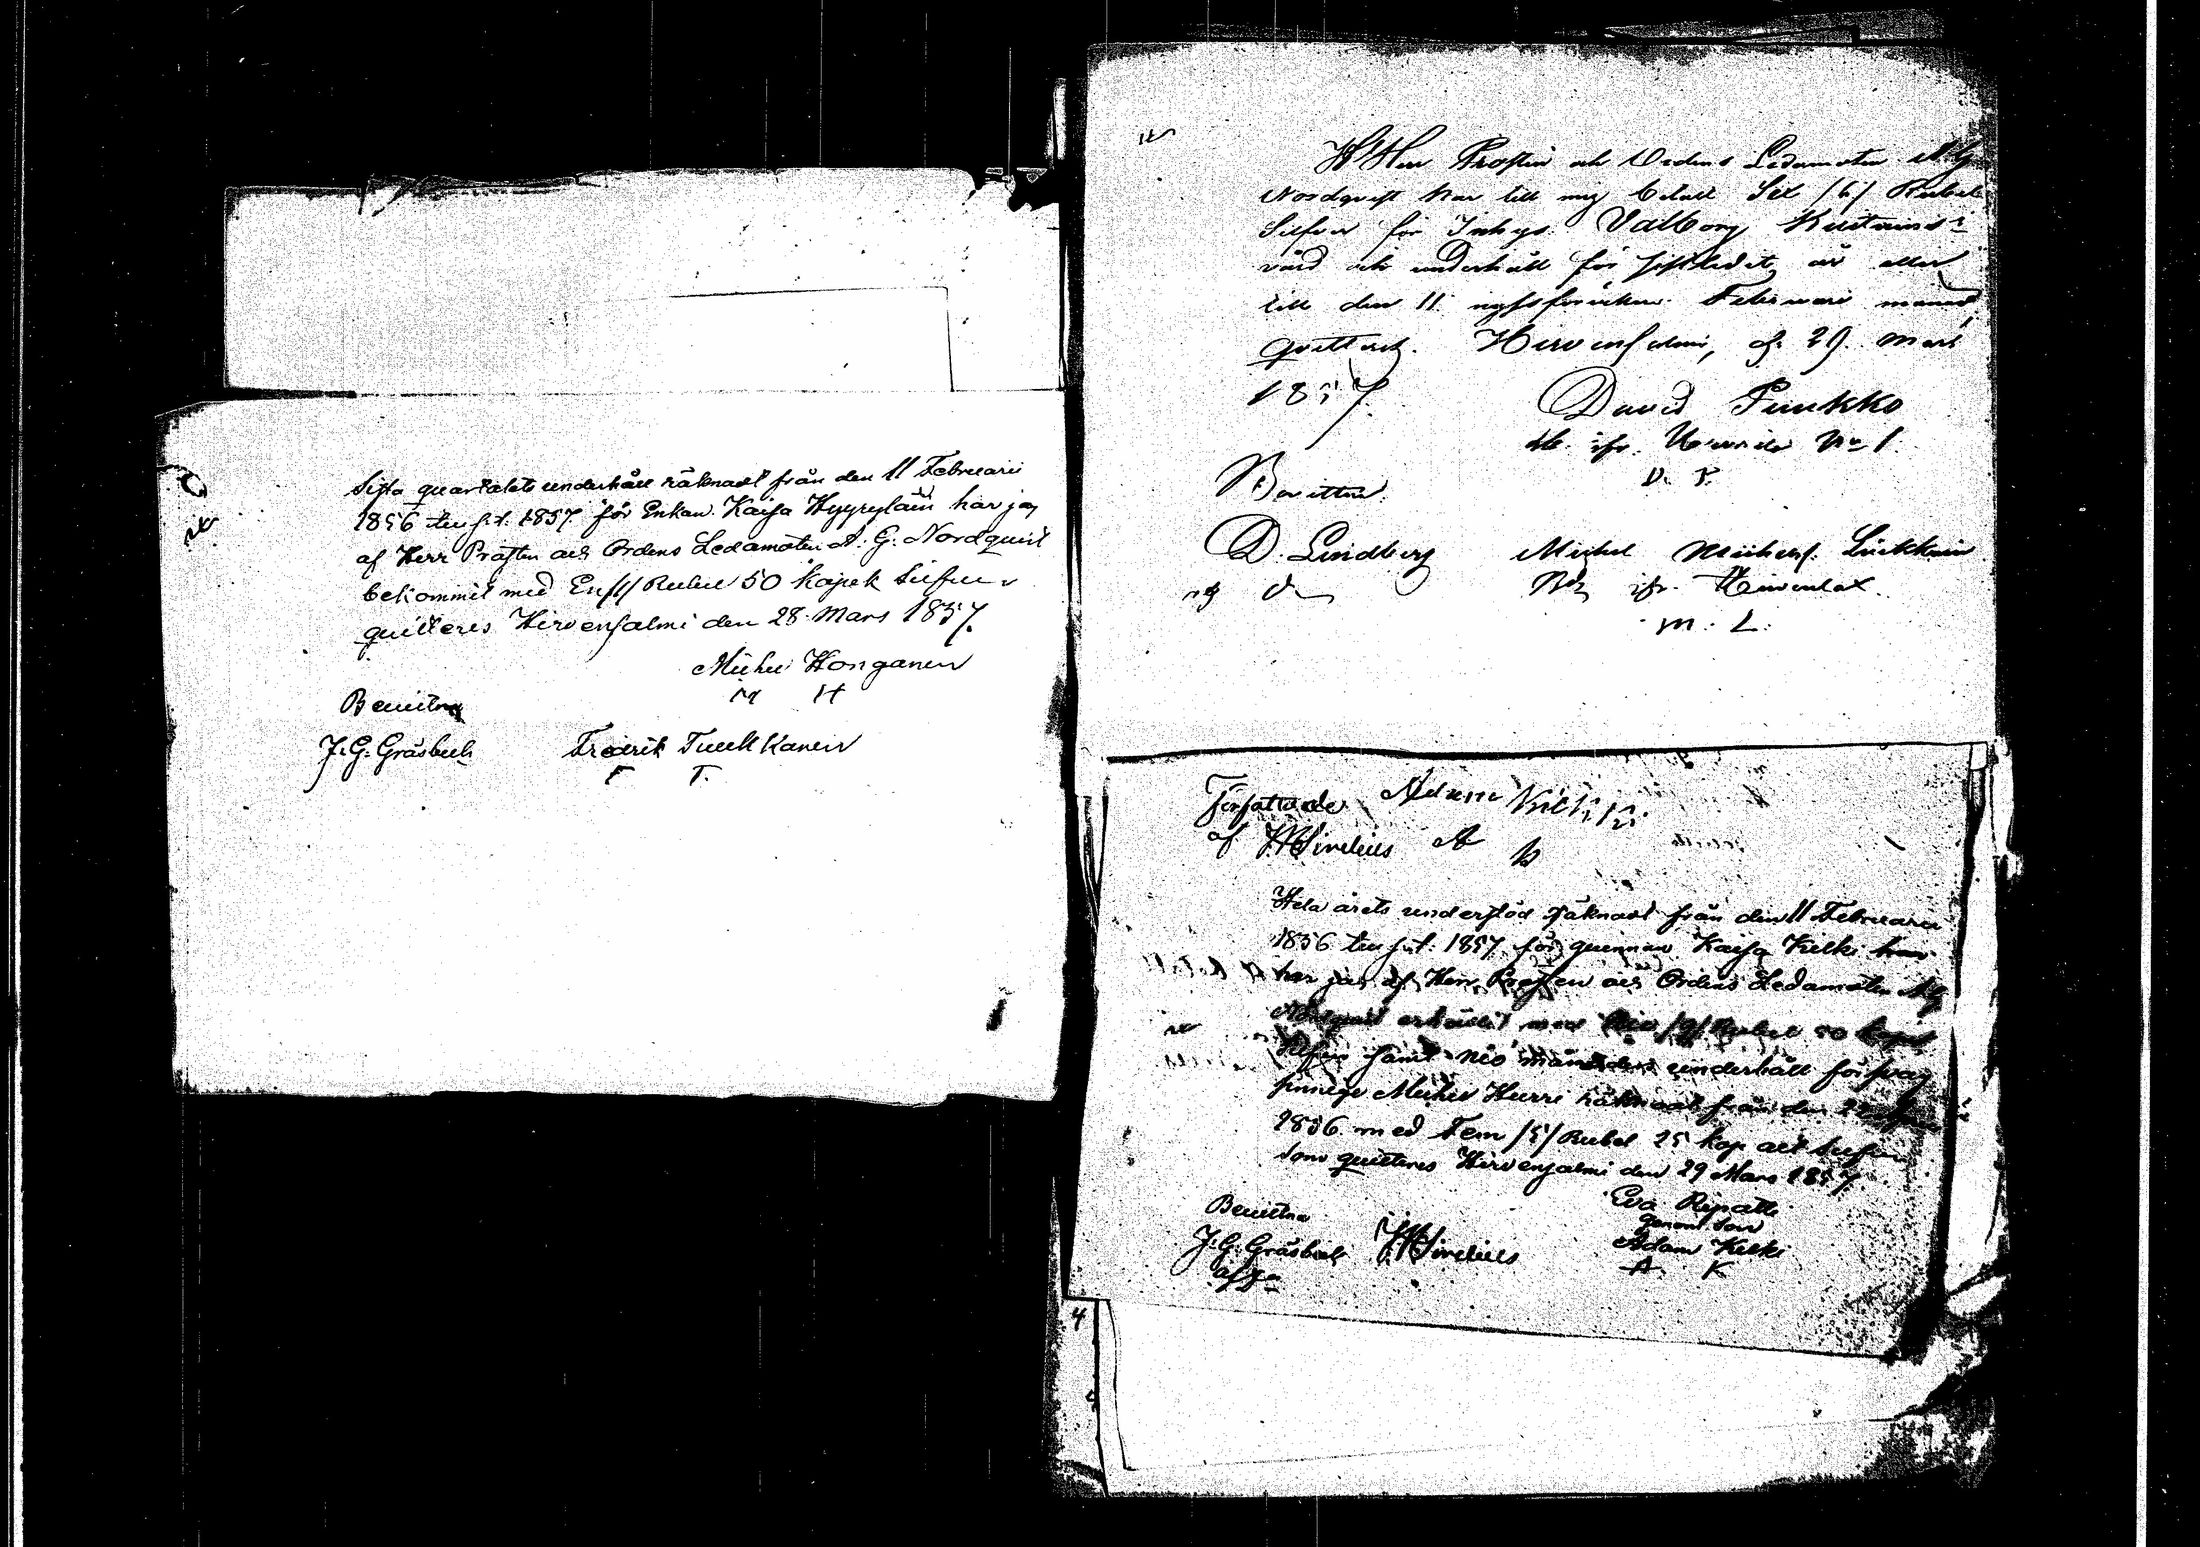 Sista quartalets underhåll räknadt från den 11 Februarii
1856 till s.d. 1857 för Enkan Kaisa Hyyryläin har jag
af Herr Prosten och Ordens Ledamoten A. G. Nordquist
bekommit med En /1/ Rubel 50 kopek Silfver
quitteres Hirvensalmi den 28 Mars 1857.
Michel Honganen
M H
Bevittna
J. G. Gråsbeck Fredrik Tuukkanen
F T.
H Herr Prosten och Ordens Ledamoten A. G.
Nordqvist har till mig betalt Sex /6/ Rubel
Silfver för Inhys. Valborg
vård och underhåll för sistledit år eller
till den 11 Februari månad
qvitteras. Hirvensalmi, d. 29. Mars
1857.
David Puukko
No 1.
D. P.
Bevittna
D. Lindberg Michel Lückkain
ifr. Hirvenlax.
M. L.
Författade Adam
af Sirelius A
Hela årets understöd räknadt från den 11 Februarii
1856 till s.d. 1857 för quinnan Kaisa Kilki
har jag af Herr Prosten och Ordens Ledamoten A. G.
Nordquist erhållit med Nio /9/ Rubel 50 kopek
Silfver samt nio månaders underhåll för svag
sinnige Michel Hurri räknadt från den
1856 med Fem /5/ Rubel 25 kop allt Silfver
som quitteres Hirvensalmi den 29 Mars 1857.
Eva Ripatti
genom Son
Bevittna Adam Kilki
J. G. Gråsbeck Sirelius A. K